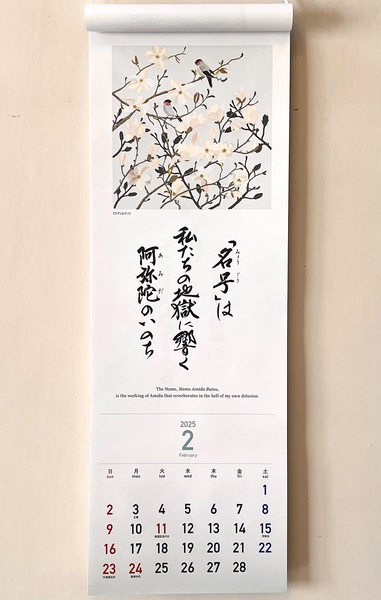 「名号」は
みょうごう
私たちの地獄に響く
阿弥陀のいのち
あみだ
The Name, Namu Amida Butsu,
is the working of Amida that reverberates in the hell of my own delusion.
2025
2
February
日 月 火 水 木 金 土
sun mon tue wed thu fri sat
1
2 3 4 5 6 7 8
9 10 11 12 13 14 15
16 17 18 19 20 21 22
23 24 25 26 27 28